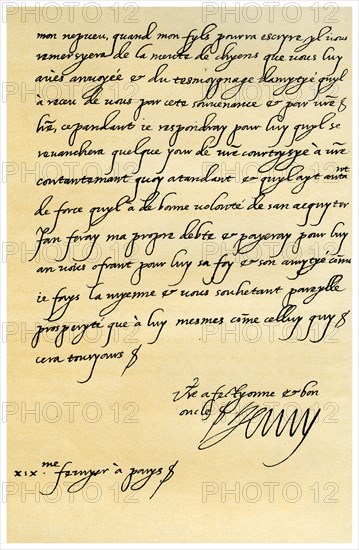 mon nepveu, quand mon fyls pourra escryre yl vous
remersyera de la meute de chyens que vous luy
aviés anvoyée & du tesmoygnage d'amytyé quyl
à receu de vous par cete souvenance & par vre
lre, cepandant ie respondray pour luy quyl se
revanchera quelque jour de vre courtoysye à vre
contantemant quoy atandant & quyl ayt autant
de force quyl à de bonne volonté de san aquyter
Jan feray ma propre debte & payeray pour luy
an vous ofrant pour luy sa foy & son amytyé come
ie fays la myenne & vous souhetant pareylle
prosperyté que à luy mesmes come celluy quy
cera tousjours
Vre afectyonné & bon
oncle
Henry
xix.me fevryer à parys
PHOTO 12